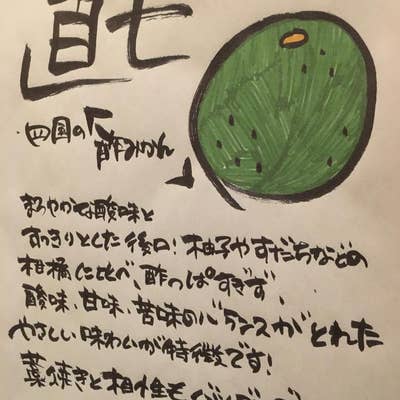 直七
四国の「酢みかん」
まろやかな酸味と
すっきりとした後口！柚子やすだちなどの
柑橘に比べ、酢っぱすぎず、
酸味、甘味、苦味のバランスがとれた
やさしい味わいが特徴です！
藁焼きと相性も